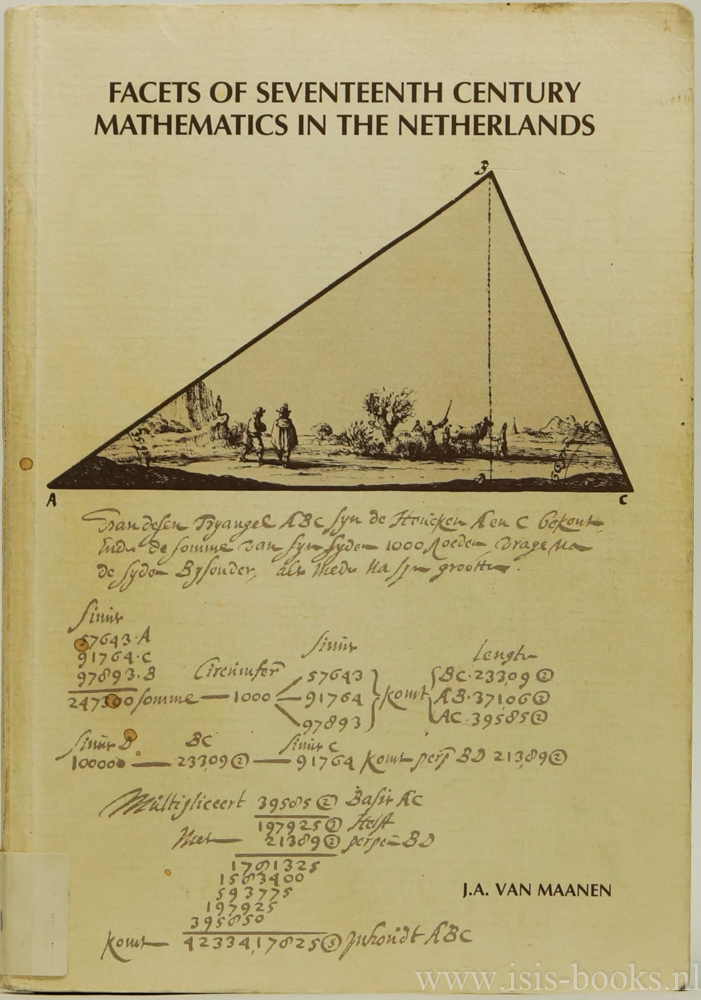 FACETS OF SEVENTEENTH CENTURY
MATHEMATICS IN THE NETHERLANDS
B
A
C
Van desen Tryangel ABC syn de Houcken A en C bekent,
Ende de somme van syn syden 1000 Roeden Vrage na
de syden Bysonder, als mede na syn grootte.
Sinus
57643·A
91764·C
97893·B
247300 somme — 1000
Circumfer
Sinus
57643
91764
97893
komt
Lengte
BC·23309②
AB·37106②
AC·39585②
Sinus D BC Sinus C
100000 — 23309② — 91764 komt perp BD 21389②
Multipliceert 39585② Basis AC
197925② Helft
Met 21389② perpen BD
1781325
1583400
593775
197925
395850
komt 42334,17825⑤ Inhoudt ABC
J.A. VAN MAANEN
www.isis-books.nl